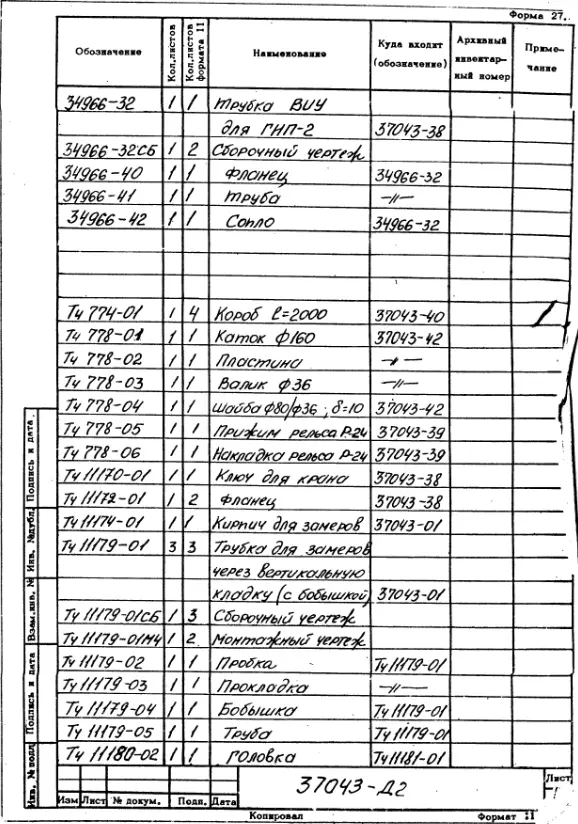 Форма 27.
Обозначение Кол.листов Кол.листов формата 11 Наименование Куда входит (обозначение) Архивный инвентарный номер Примечание
34966-32 1 1 Трубка ВИУ
для ГНП-2 37043-38
34966-32СБ 1 2 Сборочный чертеж
34966-40 1 1 Фланец 34966-32
34966-41 1 1 Труба —//—
34966-42 1 1 Сопло 34966-32
Тч 774-01 1 4 Короб ℓ=2000 37043-40
Тч 778-01 1 1 Каток ф160 37043-42
Тч 778-02 1 1 Пластина —//—
Тч 778-03 1 1 Валик ф36 —//—
Тч 778-04 1 1 Шайба ф80/ф36; δ=10 37043-42
Тч 778-05 1 1 Прижим рельса Р-24 37043-39
Тч 778-06 1 1 Накладка рельса Р-24 37043-39
Тч 11170-01 1 1 Ключ для крана 37043-38
Тч 11172-01 1 2 Фланец 37043-38
Тч 11174-01 1 1 Кирпич для замеров 37043-01
Тч 11179-01 3 3 Трубка для замеров
через вертикальную
кладку (с бобышкой) 37043-01
Тч 11179-01СБ 1 3 Сборочный чертеж
Тч 11179-01МЧ 1 2 Монтажный чертеж
Тч 11179-02 1 1 Пробка Тч 11179-01
Тч 11179-03 1 1 Прокладка —//—
Тч 11179-04 1 1 Бобышка Тч 11179-01
Тч 11179-05 1 1 Труба Тч 11179-01
Тч 11180-02 1 1 Головка Тч 11181-01
Подпись и дата
Инв. №дубл.
Взам.инв. №
Подпись и дата
Инв. №подл
Изм Лист № докум. Подп. Дата
37043-Д2
Лист
Копировал Формат 11